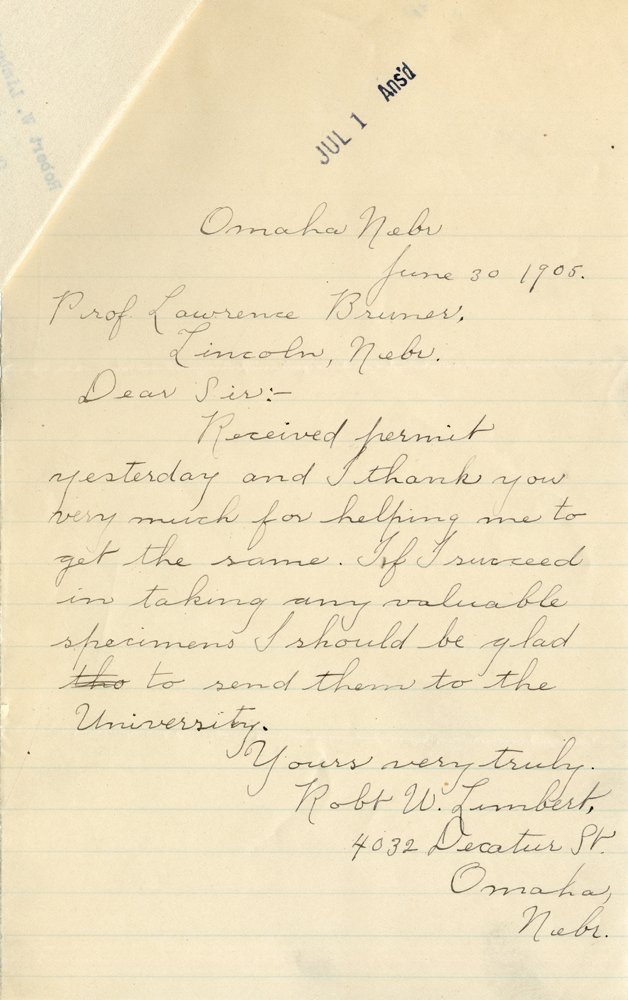 JUL 1 Ans'd
Omaha Nebr
June 30 1905.
Prof Lawrence Bruner,
Lincoln, Nebr.
Dear Sir:-
Received permit
yesterday and I thank you
very much for helping me to
get the same. If I succeed
in taking any valuable
specimens I should be glad
tho to send them to the
University.
Yours very truly.
Robt W. Limbert,
4032 Decatur St.
Omaha,
Nebr.